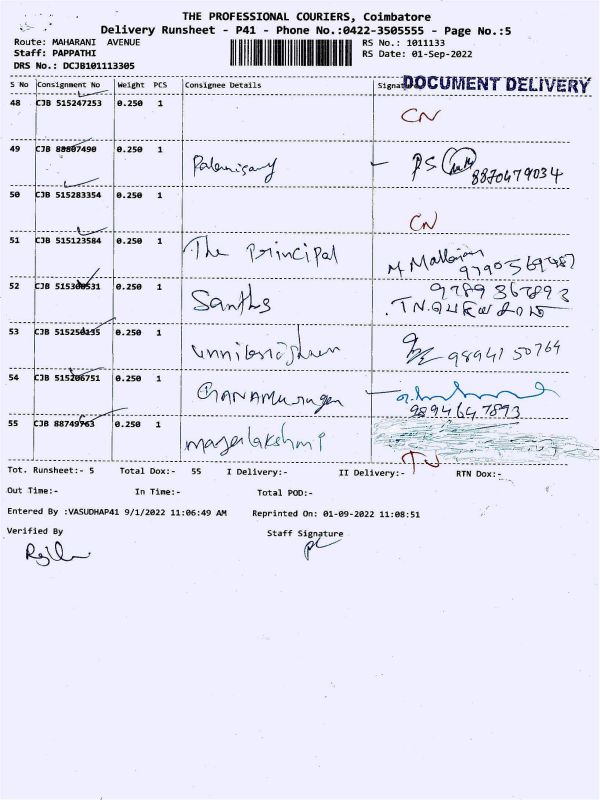 THE PROFESSIONAL COURIERS, Coimbatore
Delivery Runsheet - P41 - Phone No.:0422-3505555 - Page No.:5
Route: MAHARANI AVENUE
RS No.: 1011133
Staff: PAPPATHI
RS Date: 01-Sep-2022
DRS No.: DCJB101113305
S No Consignment No Weight PCS Consignee Details
DOCUMENT DELIVERY
48 CJB 515247253 0.250 1
CN
49 CJB 88807490 0.250 1 Palanisamy
PS
8870479034
50 CJB 515283354 0.250 1
CN
51 CJB 515123584 0.250 1 The Principal
52 CJB 515300531 0.250 1
9789367893
53 CJB 515250135 0.250 1
98941 50764
54 CJB 515206751 0.250 1
9894647893
55 CJB 88749763 0.250 1
Tot. Runsheet:- 5 Total Dox:- 55 I Delivery:- II Delivery:- RTN Dox:-
Out Time:- In Time:- Total POD:-
Entered By :VASUDHAP41 9/1/2022 11:06:49 AM Reprinted On: 01-09-2022 11:08:51
Verified By
Staff Signature